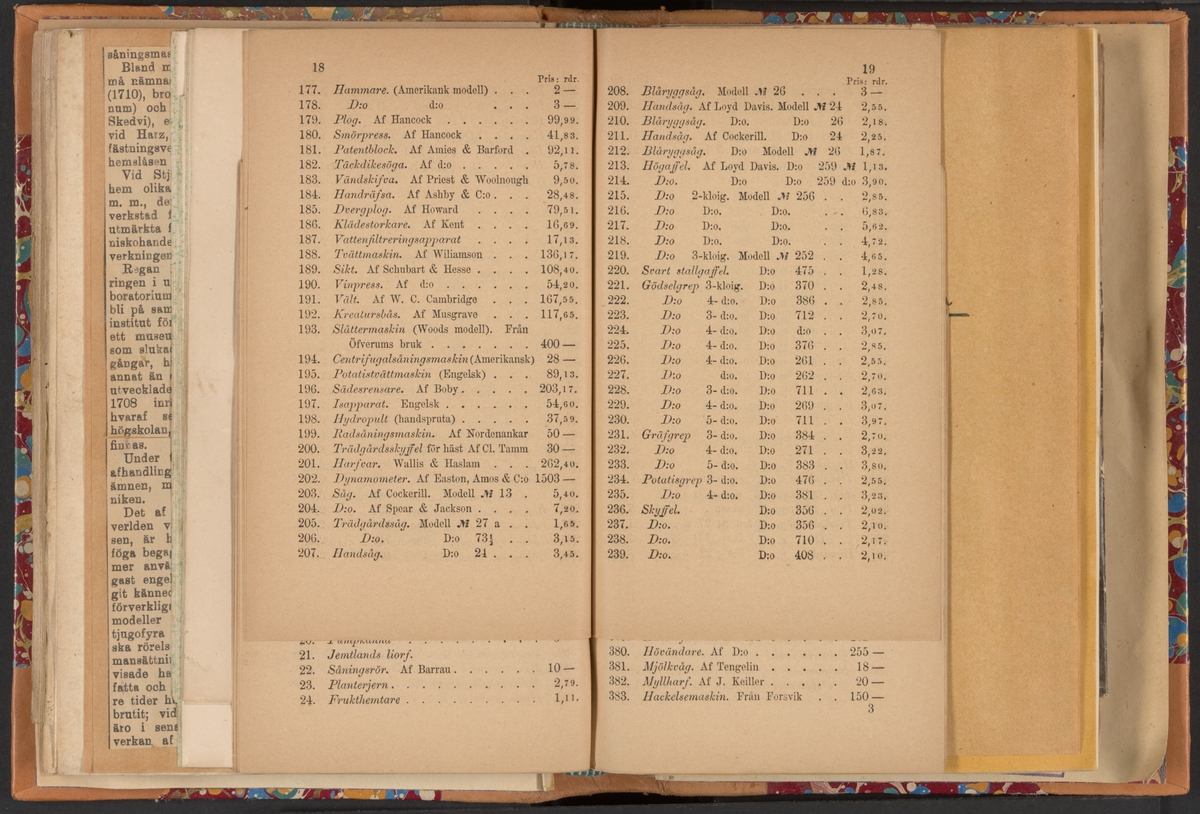 såningsmas
Bland m
må nämna
(1710), bro
num) och
Skedvi), e
vid Harz,
fästningsve
hemslåsen
Vid Stj
hem olika
m. m., de
verkstad f
utmärkta f
niskohande
verkningen
Regan
ringen i u
boratorium
bli på sam
institut för
ett museu
som sluka
gångar, h
annat än
utvecklade
1708 inr
hvaraf se
högskolan,
finnas.
Under
afhandling
ämnen, m
niken.
Det af
verlden v
sen, är h
föga begag
mer anvä
gast engel
git känned
förverklig
modeller
tjugofyra
ska rörels
mansättnin
visade ha
fatta och
re tider h
brutit; vid
äro i sens
verkan af
18
Pris: rdr.
177. Hammare. (Amerikank modell) . . . 2 —
178. D:o d:o . . . 3 —
179. Plog. Af Hancock . . . . . . 99,99.
180. Smörpress. Af Hancock . . . . 41,83.
181. Patentblock. Af Amies & Barford . 92,11.
182. Täckdikesöga. Af d:o . . . . . 5,78.
183. Vändskifva. Af Priest & Woolnough 9,50.
184. Handräfsa. Af Ashby & C:o . . . 28,48.
185. Dvergplog. Af Howard . . . . 79,51.
186. Klädestorkare. Af Kent . . . . 16,69.
187. Vattenfiltreringsapparat . . . . 17,13.
188. Tvättmaskin. Af Wiliamson . . . 136,17.
189. Sikt. Af Schubart & Hesse . . . . 108,40.
190. Vinpress. Af d:o . . . . . 54,20.
191. Vält. Af W. C. Cambridge . . . 167,55.
192. Kreatursbås. Af Musgrave . . . 117,65.
193. Slåttermaskin (Woods modell). Från
Öfverums bruk . . . . . . . 400 —
194. Centrifugalsåningsmaskin (Amerikansk) 28 —
195. Potatistvättmaskin (Engelsk) . . . 89,13.
196. Sädesrensare. Af Boby . . . . . 203,17.
197. Isapparat. Engelsk . . . . . . 54,60.
198. Hydropult (handspruta) . . . . . 37,59.
199. Radsåningsmaskin. Af Nordenankar 50 —
200. Trädgårdsskyffel för häst Af Cl. Tamm 30 —
201. Harfvar. Wallis & Haslam . . . 262,40.
202. Dynamometer. Af Easton, Amos & C:o 1503 —
203. Såg. Af Cockerill. Modell № 13 . 5,40.
204. D:o. Af Spear & Jackson . . . . 7,20.
205. Trädgårdssåg. Modell № 27 a . . 1,65.
206. D:o. D:o 73½ . . 3,15.
207. Handsåg. D:o 24 . . . 3,45.
21. Jemtlands liorf.
22. Såningsrör. Af Barrau . . . . . . 10 —
23. Planterjern . . . . . . . . . . 2,79.
24. Frukthemtare . . . . . . . . . 1,11.
19
Pris: rdr.
208. Blåryggsåg. Modell № 26 . . . 3 —
209. Handsåg. Af Loyd Davis. Modell № 24 2,55.
210. Blåryggsåg. D:o. D:o 26 2,18.
211. Handsåg. Af Cockerill. D:o 24 2,25.
212. Blåryggsåg. D:o Modell № 26 1,87.
213. Högaffel. Af Loyd Davis. D:o 259 № 1,13.
214. D:o. D:o D:o 259 d:o 3,90.
215. D:o 2-kloig. Modell № 256 . . 2,85.
216. D:o D:o. D:o. . . 6,83.
217. D:o D:o. D:o. . . 5,62.
218. D:o D:o. D:o. . . 4,72.
219. D:o 3-kloig. Modell № 252 . . 4,65.
220. Svart stallgaffel. D:o 475 . . 1,28.
221. Gödselgrep 3-kloig. D:o 370 . . 2,48.
222. D:o 4- d:o. D:o 386 . . 2,85.
223. D:o 3- d:o. D:o 712 . . 2,70.
224. D:o 4- d:o. D:o d:o . . 3,07.
225. D:o 4- d:o. D:o 376 . . 2,85.
226. D:o 4- d:o. D:o 261 . . 2,55.
227. D:o d:o. D:o 262 . . 2,70.
228. D:o 3- d:o. D:o 711 . . 2,63.
229. D:o 4- d:o. D:o 269 . . 3,07.
230. D:o 5- d:o. D:o 711 . . 3,97.
231. Gräfgrep 3- d:o. D:o 384 . . 2,70.
232. D:o 4- d:o. D:o 271 . . 3,22.
233. D:o 5- d:o. D:o 383 . . 3,80.
234. Potatisgrep 3- d:o. D:o 476 . . 2,55.
235. D:o 4- d:o. D:o 381 . . 3,23.
236. Skyffel. D:o 356 . . 2,02.
237. D:o. D:o 356 . . 2,10.
238. D:o. D:o 710 . . 2,17.
239. D:o. D:o 408 . . 2,10.
380. Hövändare. Af D:o . . . . . . 255 —
381. Mjölkvåg. Af Tengelin . . . . . 18 —
382. Myllharf. Af J. Keiller . . . . . 20 —
383. Hackelsemaskin. Från Forsvik . . 150 —
3